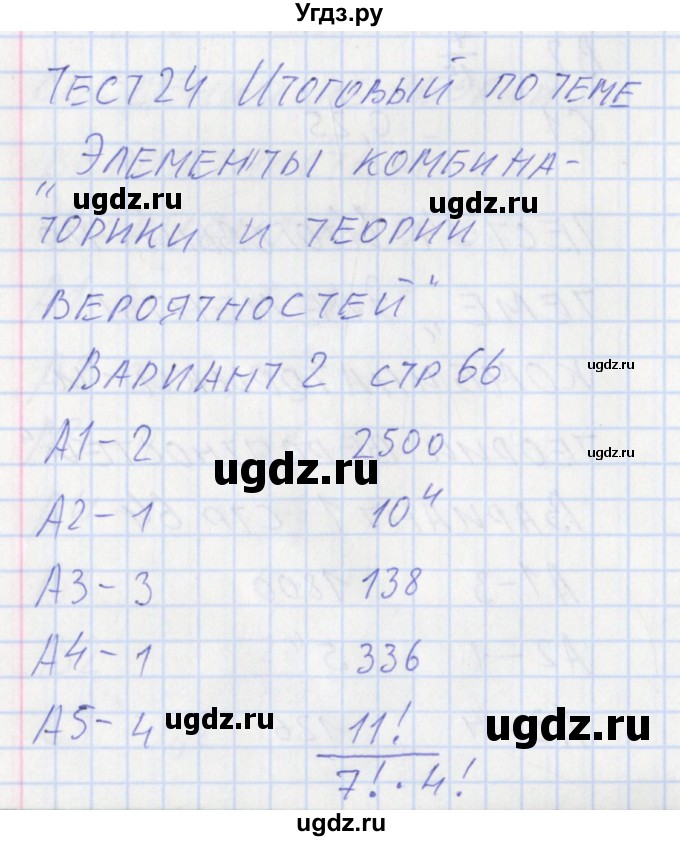 Угдз.ру
ТЕСТ 24 ИТОГОВЫЙ ПО ТЕМЕ
„ЭЛЕМЕНТЫ КОМБИНА-
ugdz.ru ugdz.ru
ТОРИКИ И ТЕОРИИ
ВЕРОЯТНОСТЕЙ"
ВАРИАНТ 2 СТР 66
ugdz.ru
А1-2 2500
ugdz.ru ugdz.ru
А2-1 10⁴
А3-3 138
А4-1 336
А5-4 11!
ugdz.ru ugdz.ru
7! · 4!
ugdz.ru